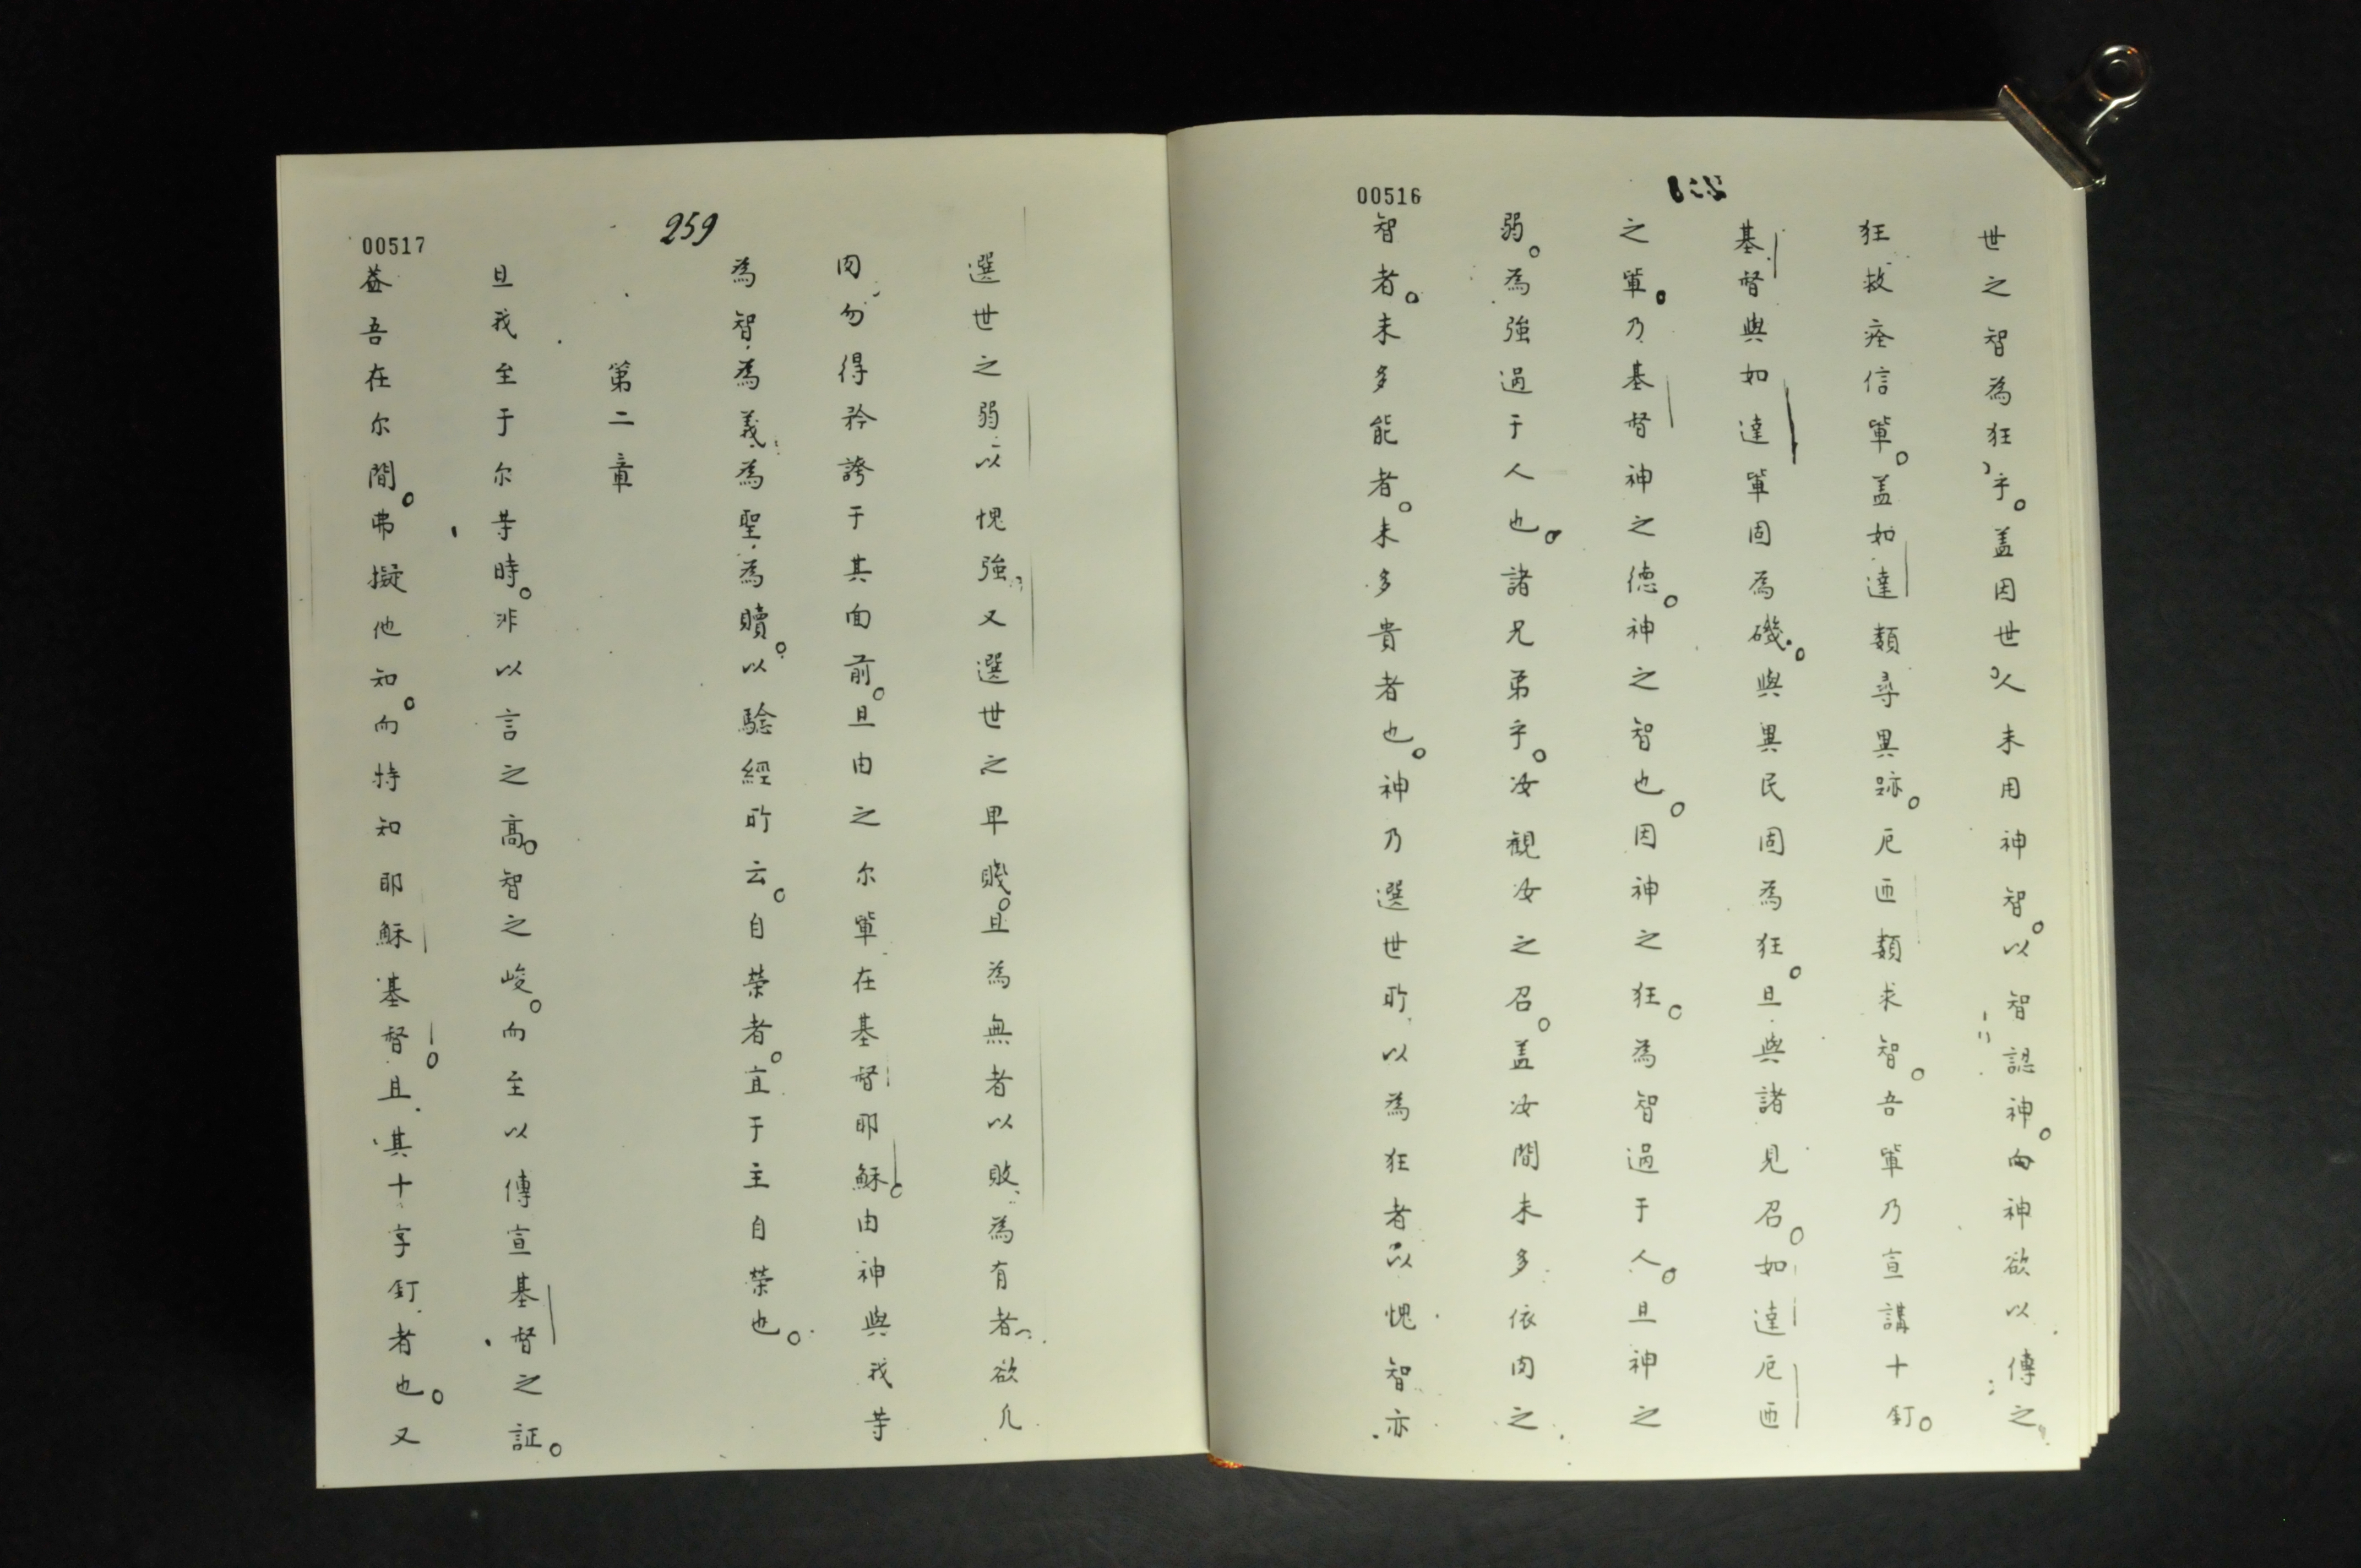 00516
世之智為狂乎。盖因世人未用神智。以智認神。向神欲以傳之
狂救痊信軰。盖如達類尋異跡。厄西類求智。吾軰乃宣講十釘。
基督與如達軰固為磯。與異民固為狂。且與諸見召。如達厄西
之軰。乃基督神之德。神之智也。因神之狂。為智過于人。且神之
弱。為強過于人也。諸兄弟乎。汝観汝之召。盖汝間未多依肉之
智者。未多能者。未多貴者也。神乃選世所以為狂者以愧智亦
259
00517
選世之弱以愧強、又選世之卑賤。且為無者以敗為有者、欲凡
肉勿得矜誇于其面前。且由之尔軰在基督耶穌。由神與我等
為智、為義、為聖、為贖。以騐經所云。自荣者。宜于主自荣也。
第二章
且我至于尔等時。非以言之高。智之峻。而至以傳宣基督之証。
益吾在尔間。弗擬他知。而特知耶穌基督。且其十字釘者也。又